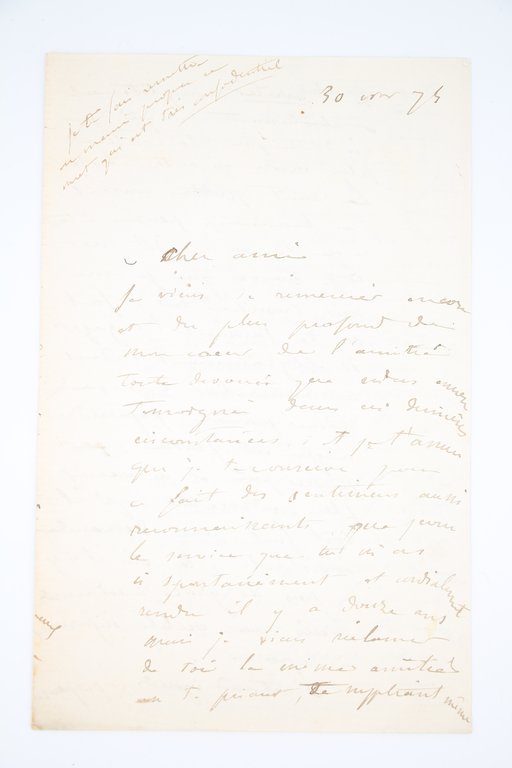 je te fais remettre
en main propre ce
mot qui est très confidentiel
30 nov 75
cher ami
Je viens te remercier encore
et du plus profond de
mon coeur de l'amitié
toute dévouée que tu m'as encore
temoignée dans ces dernières
circonstances ; Et je t'assure
que je te conserve pour
ce fait des sentimens aussi
reconnaissants que pour
le service que tu m'as
si spontanément et cordialement
rendu il y a douze ans
mais je viens réclamer
de toi la même amitié
en te priant, te suppliant même